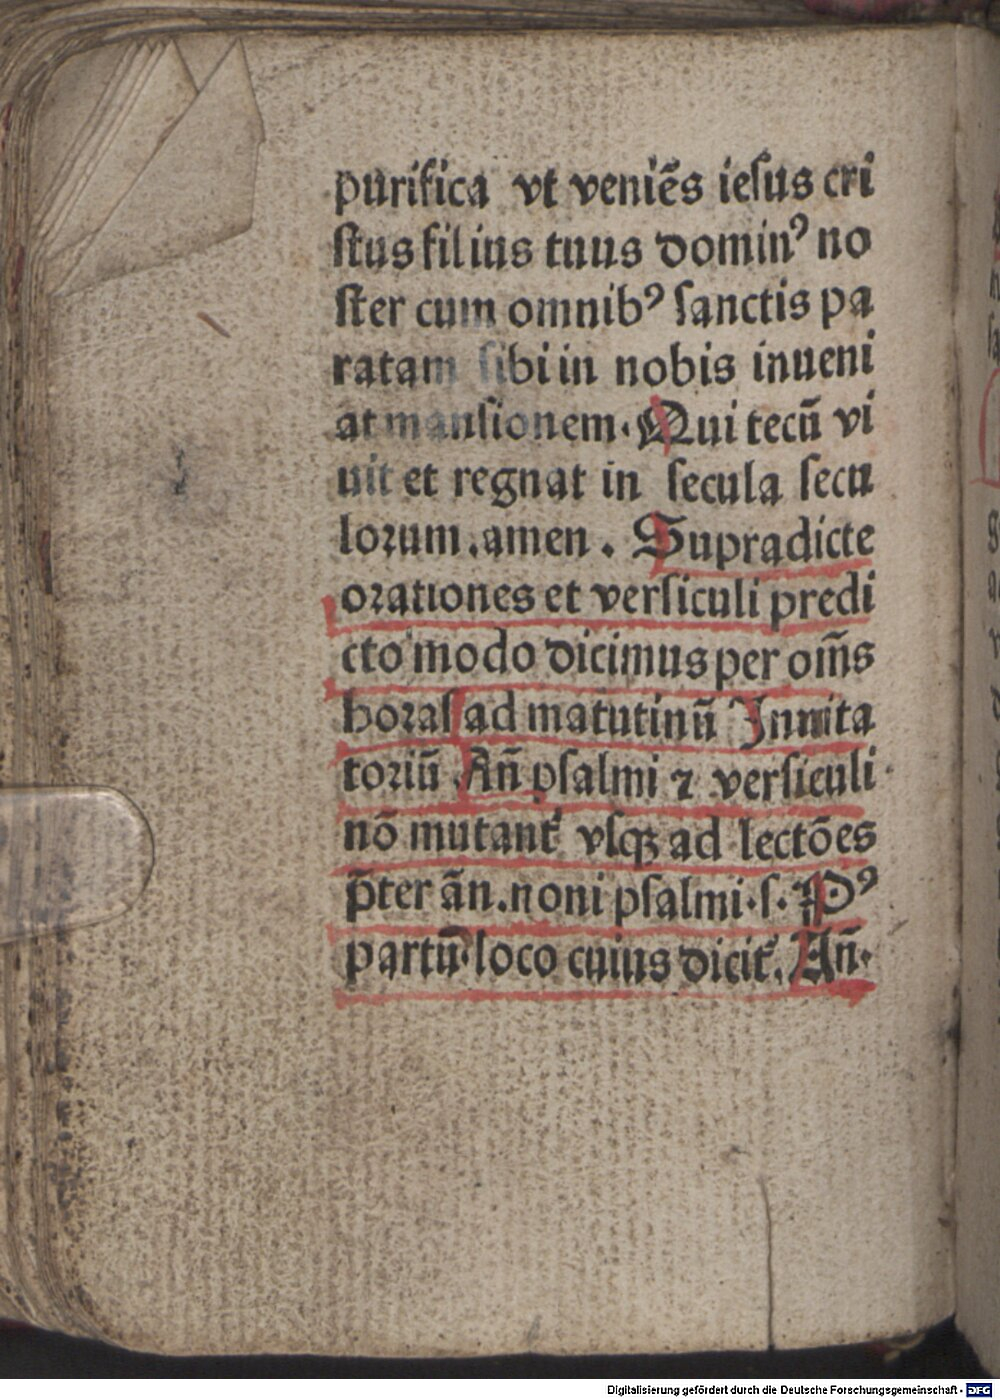 purifica vt veniēs ieſus cri
ſtus filius tuus dominꝰ no
ſter cum omnibꝰ ſanctis pa
ratam ſibi in nobis inueni
at manſionem. Qui tecū vi
uit et regnat in ſecula ſecu
loꝛum. amen. Supradicte
oꝛationes et verſiculi predi
cto modo dicimus per om̄s
hoꝛaſ ad matutinū Inuita
toꝛiū An̄ pſalmi ⁊ verſiculi
nō mutant᷑ vſqꝫ ad lectōes
p̄ter ān. noni pſalmi. ſ. Pꝰ
partū loco cuius dicit᷑. An̄.
Digitalisierung gefördert durch die Deutsche Forschungsgemeinschaft - DFG